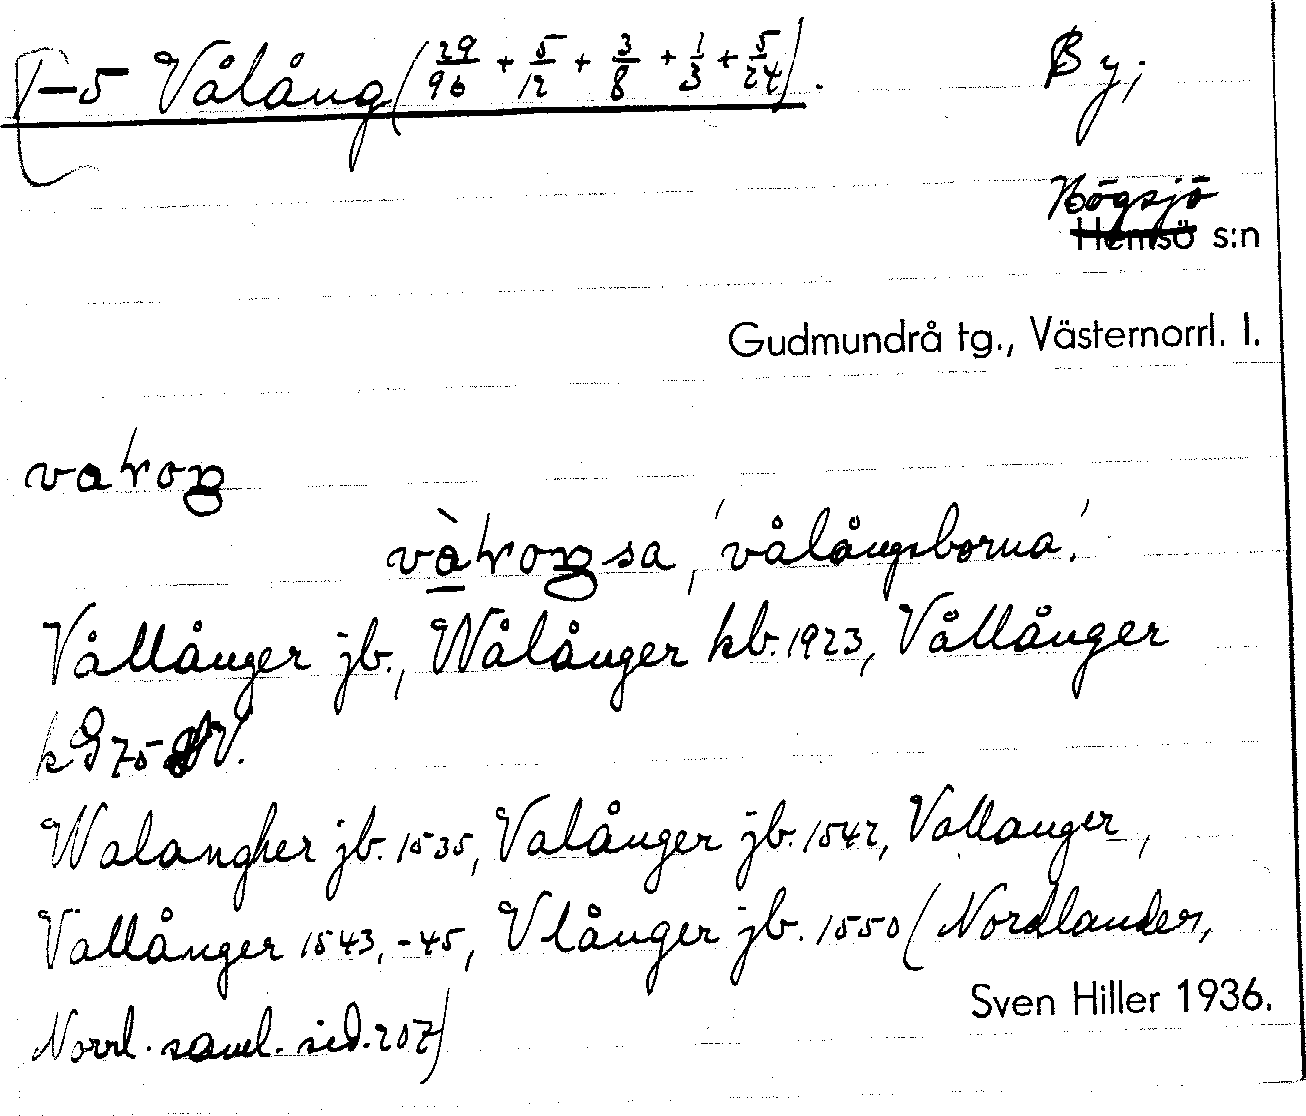 1-5 Vålång (29/96 + 5/12 + 3/8 + 1/3 + 5/24). By;
Högsjö
Hemsö s:n
Gudmundrå tg., Västernorrl. l.
, 'vålångsborna'.
Vållånger jb., Wålånger kb. 1923, Vållånger
V.
Walangher jb. 1535, Valånger jb. 1542, Vallanger,
Vallånger 1543, -45, Vlånger jb. 1550 (Nordlander,
Norrl. saml. sid. 207)
Sven Hiller 1936.